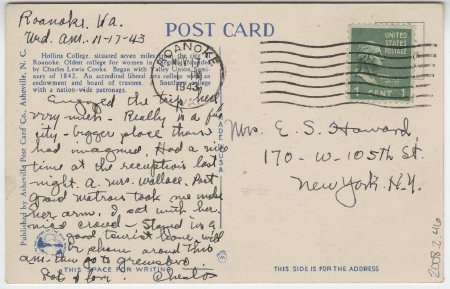 Roanoke, Va.
Wed. am. 11-17-43
POST CARD
Hollins College, situated seven miles
Roanoke. Oldest college for women in
by Charles Lewis Cocke. Began with Valley Union
nary of 1842. An accredited liberal arts college
endowment and board of trustees. Southern college
with a nation-wide patronage.
ROANOKE
NOV 17
1943
VA.
UNITED STATES
POSTAGE
1 CENT 1
Enjoyed the trip here
very much. Really is a
city - bigger place than I
had imagined. Had a nice
time at the reception last
night. A Mrs. Wallace, Past
Grand Matron took me under
her arm. I sat with her.
nice crowd - Stayed in a
good tourist home, will
be phoning around this
am. then go to Greensboro.
Lots of love.
Mrs. E. S. Howard,
170 - W - 105th St.
New York, N.Y.
MADE IN U.S.A.
Published by Asheville Post Card Co., Asheville, N. C.
THIS SPACE FOR WRITING
THIS SIDE IS FOR THE ADDRESS
2008.2.46